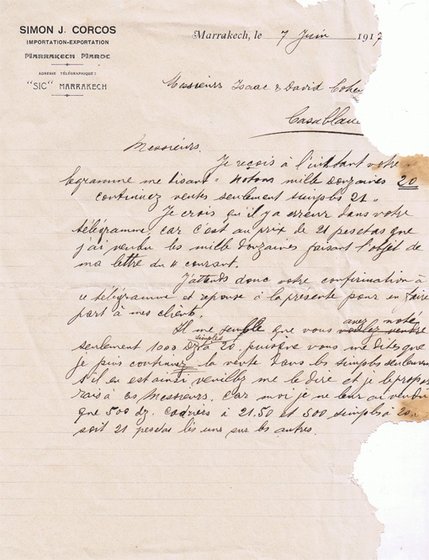 SIMON J. CORCOS
IMPORTATION-EXPORTATION
MARRAKECH MAROC
ADRESSE TÉLÉGRAPHIQUE:
"SIC" MARRAKECH
Marrakech, le 7 Juin 1917
Messieurs Isaac & David Cohen
Casablanc
Messieurs,
Je reçois à l'instant votre
légramme me lisant: notons mille douzaines 20
continuez ventes seulement simples 21.
Je crois qu'il y a erreur dans votre
télégramme car c'est au prix de 21 pesetas que
j'ai vendu les mille douzaines faisant l'objet de
ma lettre du 4 courant.
J'attends donc votre confirmation à
ce télégramme et réponse à la présente pour en faire
part à mes clients.
Il me semble que vous avez noté
seulement 1000 dz simples à 20, puisque vous me dites que
je puis continuer la vente dans les simples seulement
s'il en est ainsi veuillez me le dire et je le propo
rais à ces Messieurs. Car moi je ne leur ai vendu
que 500 dz. à 21.50 et 500 simples à 20
soit 21 pesetas les uns sur les autres.